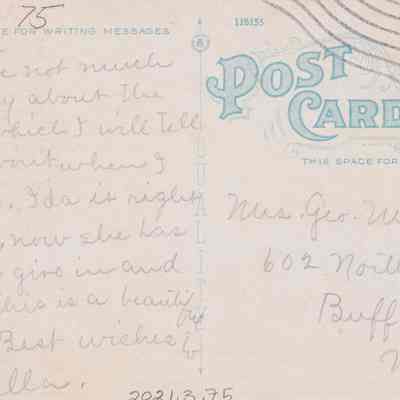 75
E FOR WRITING MESSAGES
not much
y about the
which I will Tell
about when I
Ida is right
now she has
give in and
this is a beautiful
Best wishes
lla.
118155
POST
CARD
THIS SPACE FOR
Mrs. Geo. W
602 North
Buff
N
QUALIT
2021.3.75